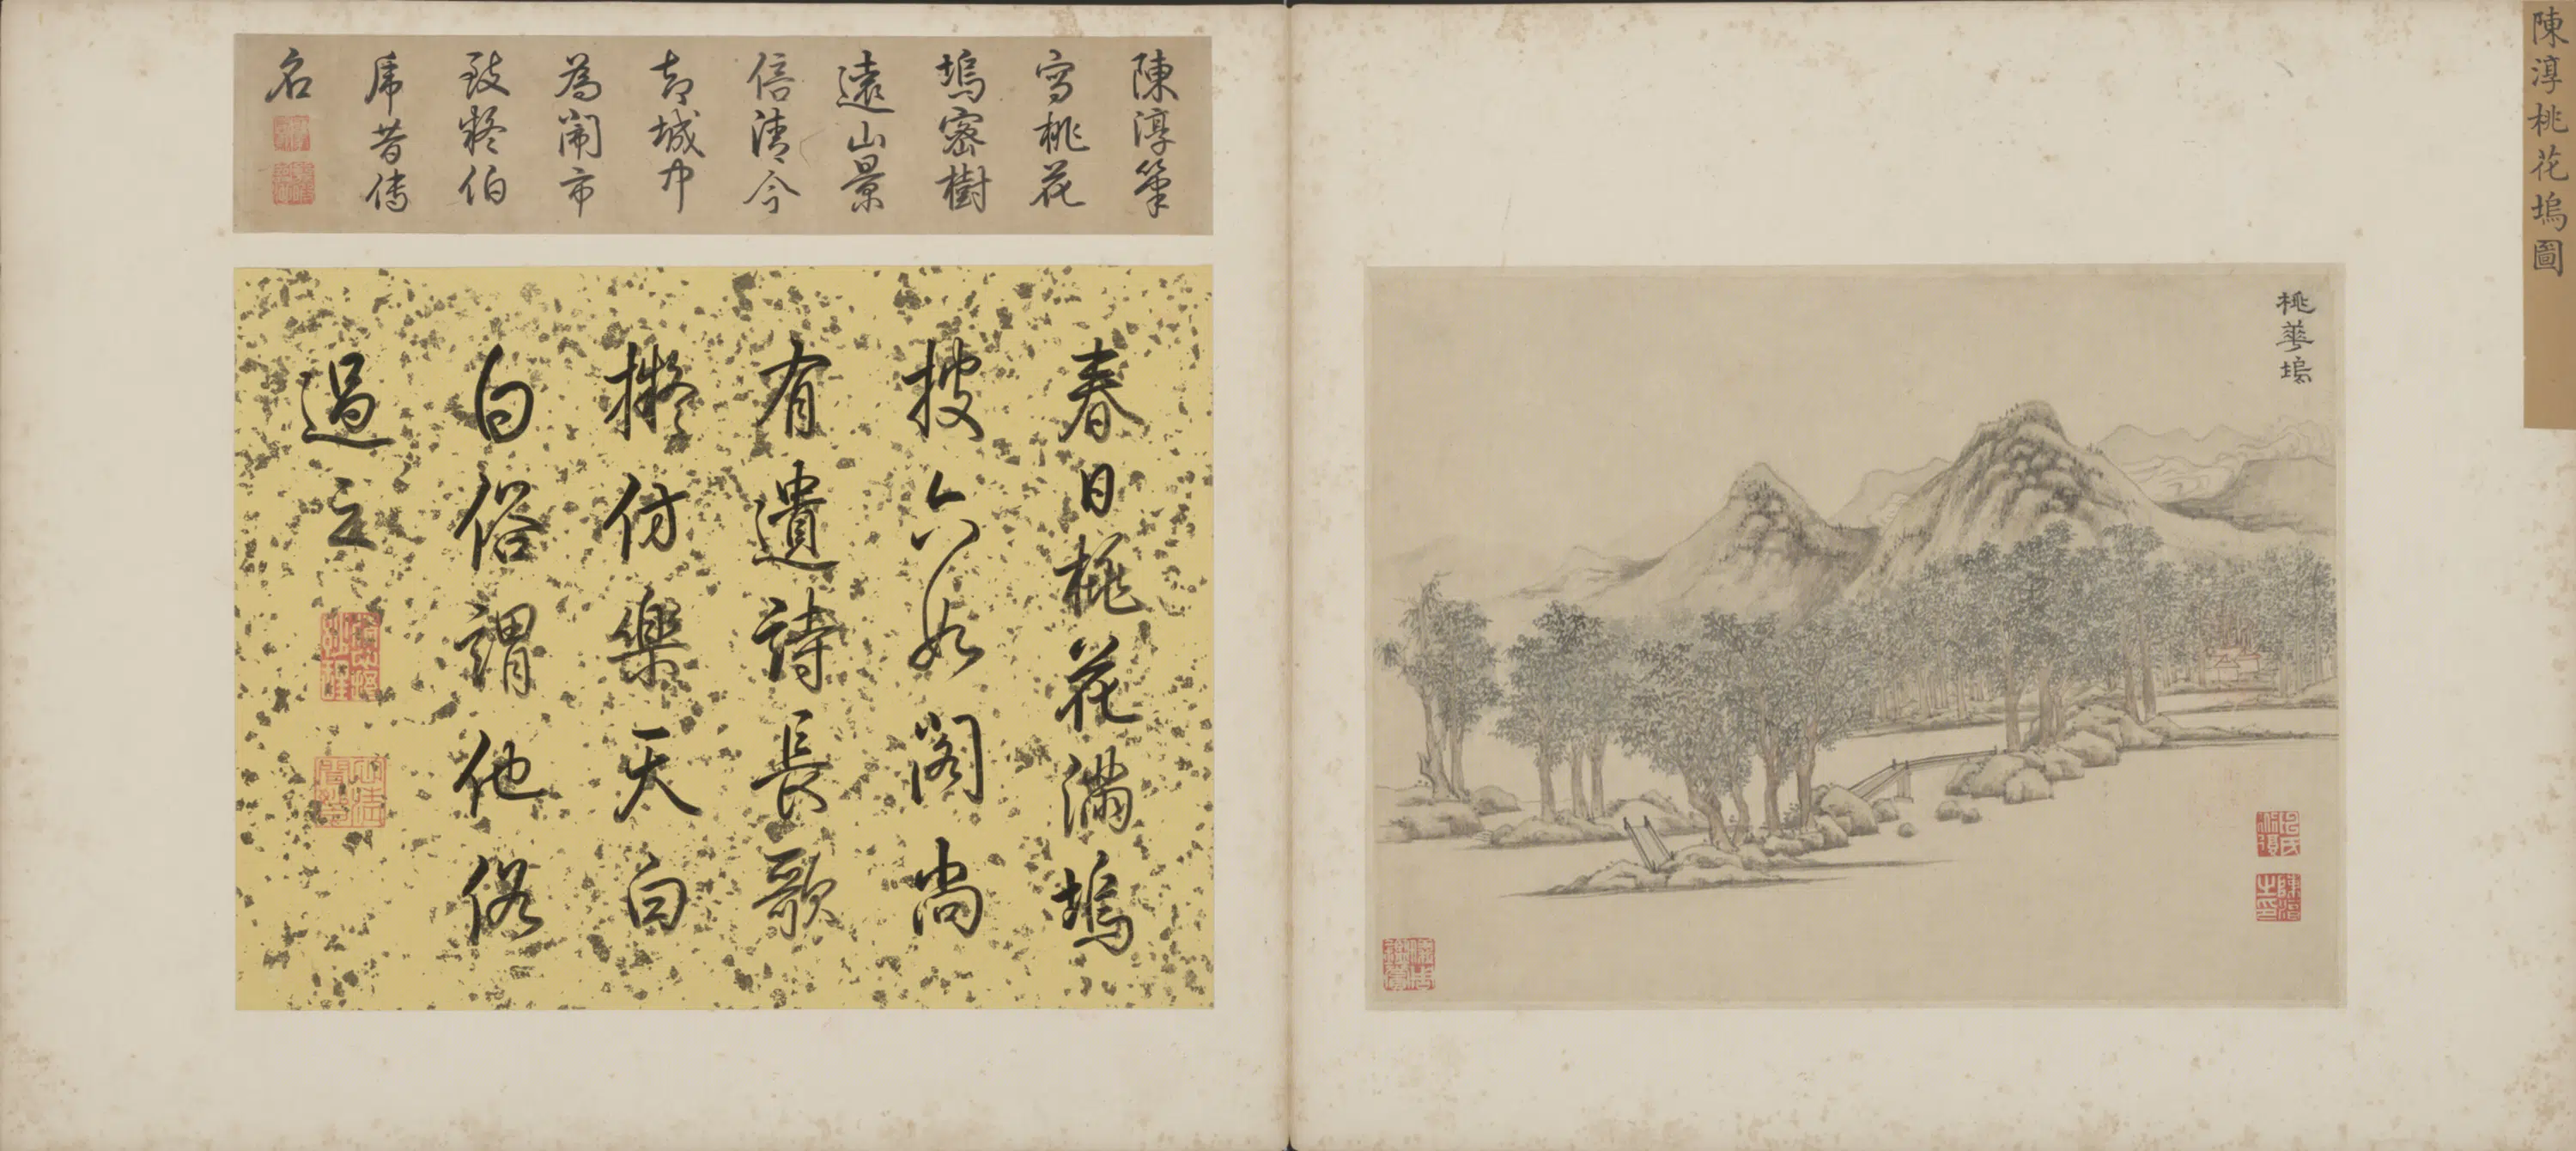 陳淳桃花塢圖
桃華塢
陳淳之印
陳淳筆
寫桃花
塢密樹
遠山景
信清今
却城中
為鬧市
致疑伯
虎昔傳
名
春日桃花滿塢
披六如閣尚
有遺詩長歌
擬仿樂天白
白俗謂他俗
過之